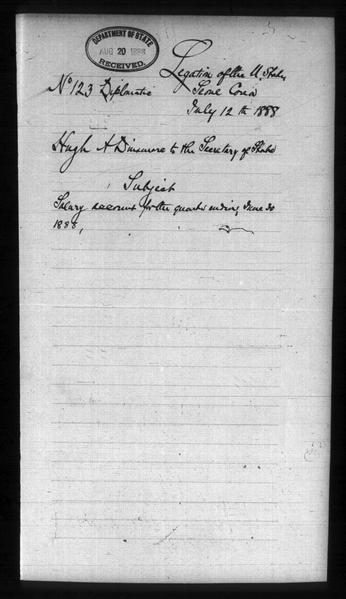 DEPARTMENT OF STATE
AUG 20 1888
RECEIVED.
Legation of the U. States
No 123 Diplomatic Seoul Corea
July 12th 1888
Hugh A Dinsmore to the Secretary of State
Subject
Salary account for the quarter ending June 30
1888,